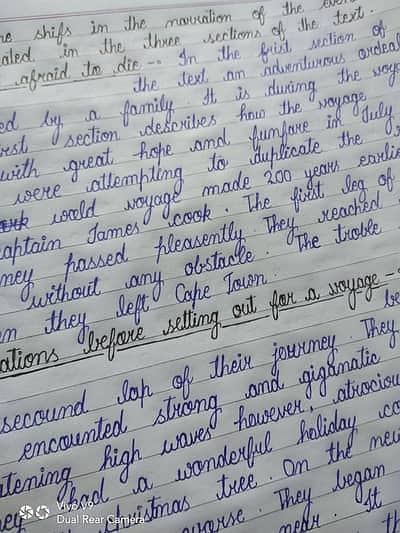 he shifs in the narration of the
ated in the three sections of the text.
afraid to die -: In the first section of
the text an adventurous ordeal
ed by a family. It is during the voya
rst section describes how the voyage
with great hope and funfare in July
were attempting to duplicate the
world voyage made 200 years earlie
aptain James cook. The first leg of
ney passed pleasently. They reached
without any obstacle. The troble
n they left Cape Town.
ations before setting out for a voyage -
be
secound lap of their journey. They
encounted strong and giganatic
atening high waves however, atrociou
ey had a wonderful holiday co
christmas tree. On the new
warse. They began
near. It
Vivo V9
Dual Rear Camera